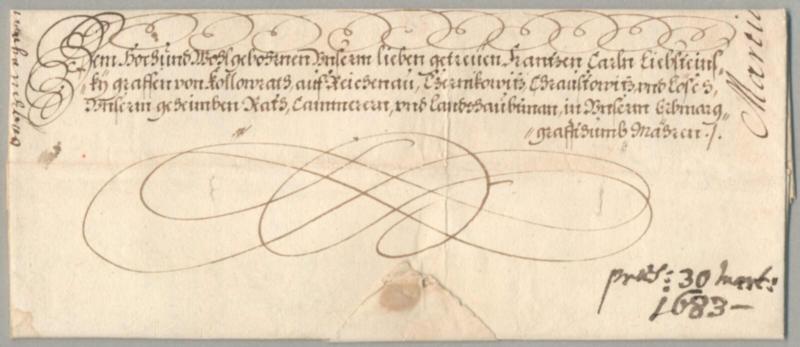 Dem Hoch und Wohlgebohrnen Unserm lieben getreüen Frantzen Carln Liebsteins-
ky graffen von Kollowrath, auf Reichenau, Czernikowitz, Chraustowitz, und Loses,
Unserm geheimben Rath, Cammerern, und landtshaubtman, in Unserm Erbmarg-
graffthumb Mähren ./.
præs: 30 Mart:
1683